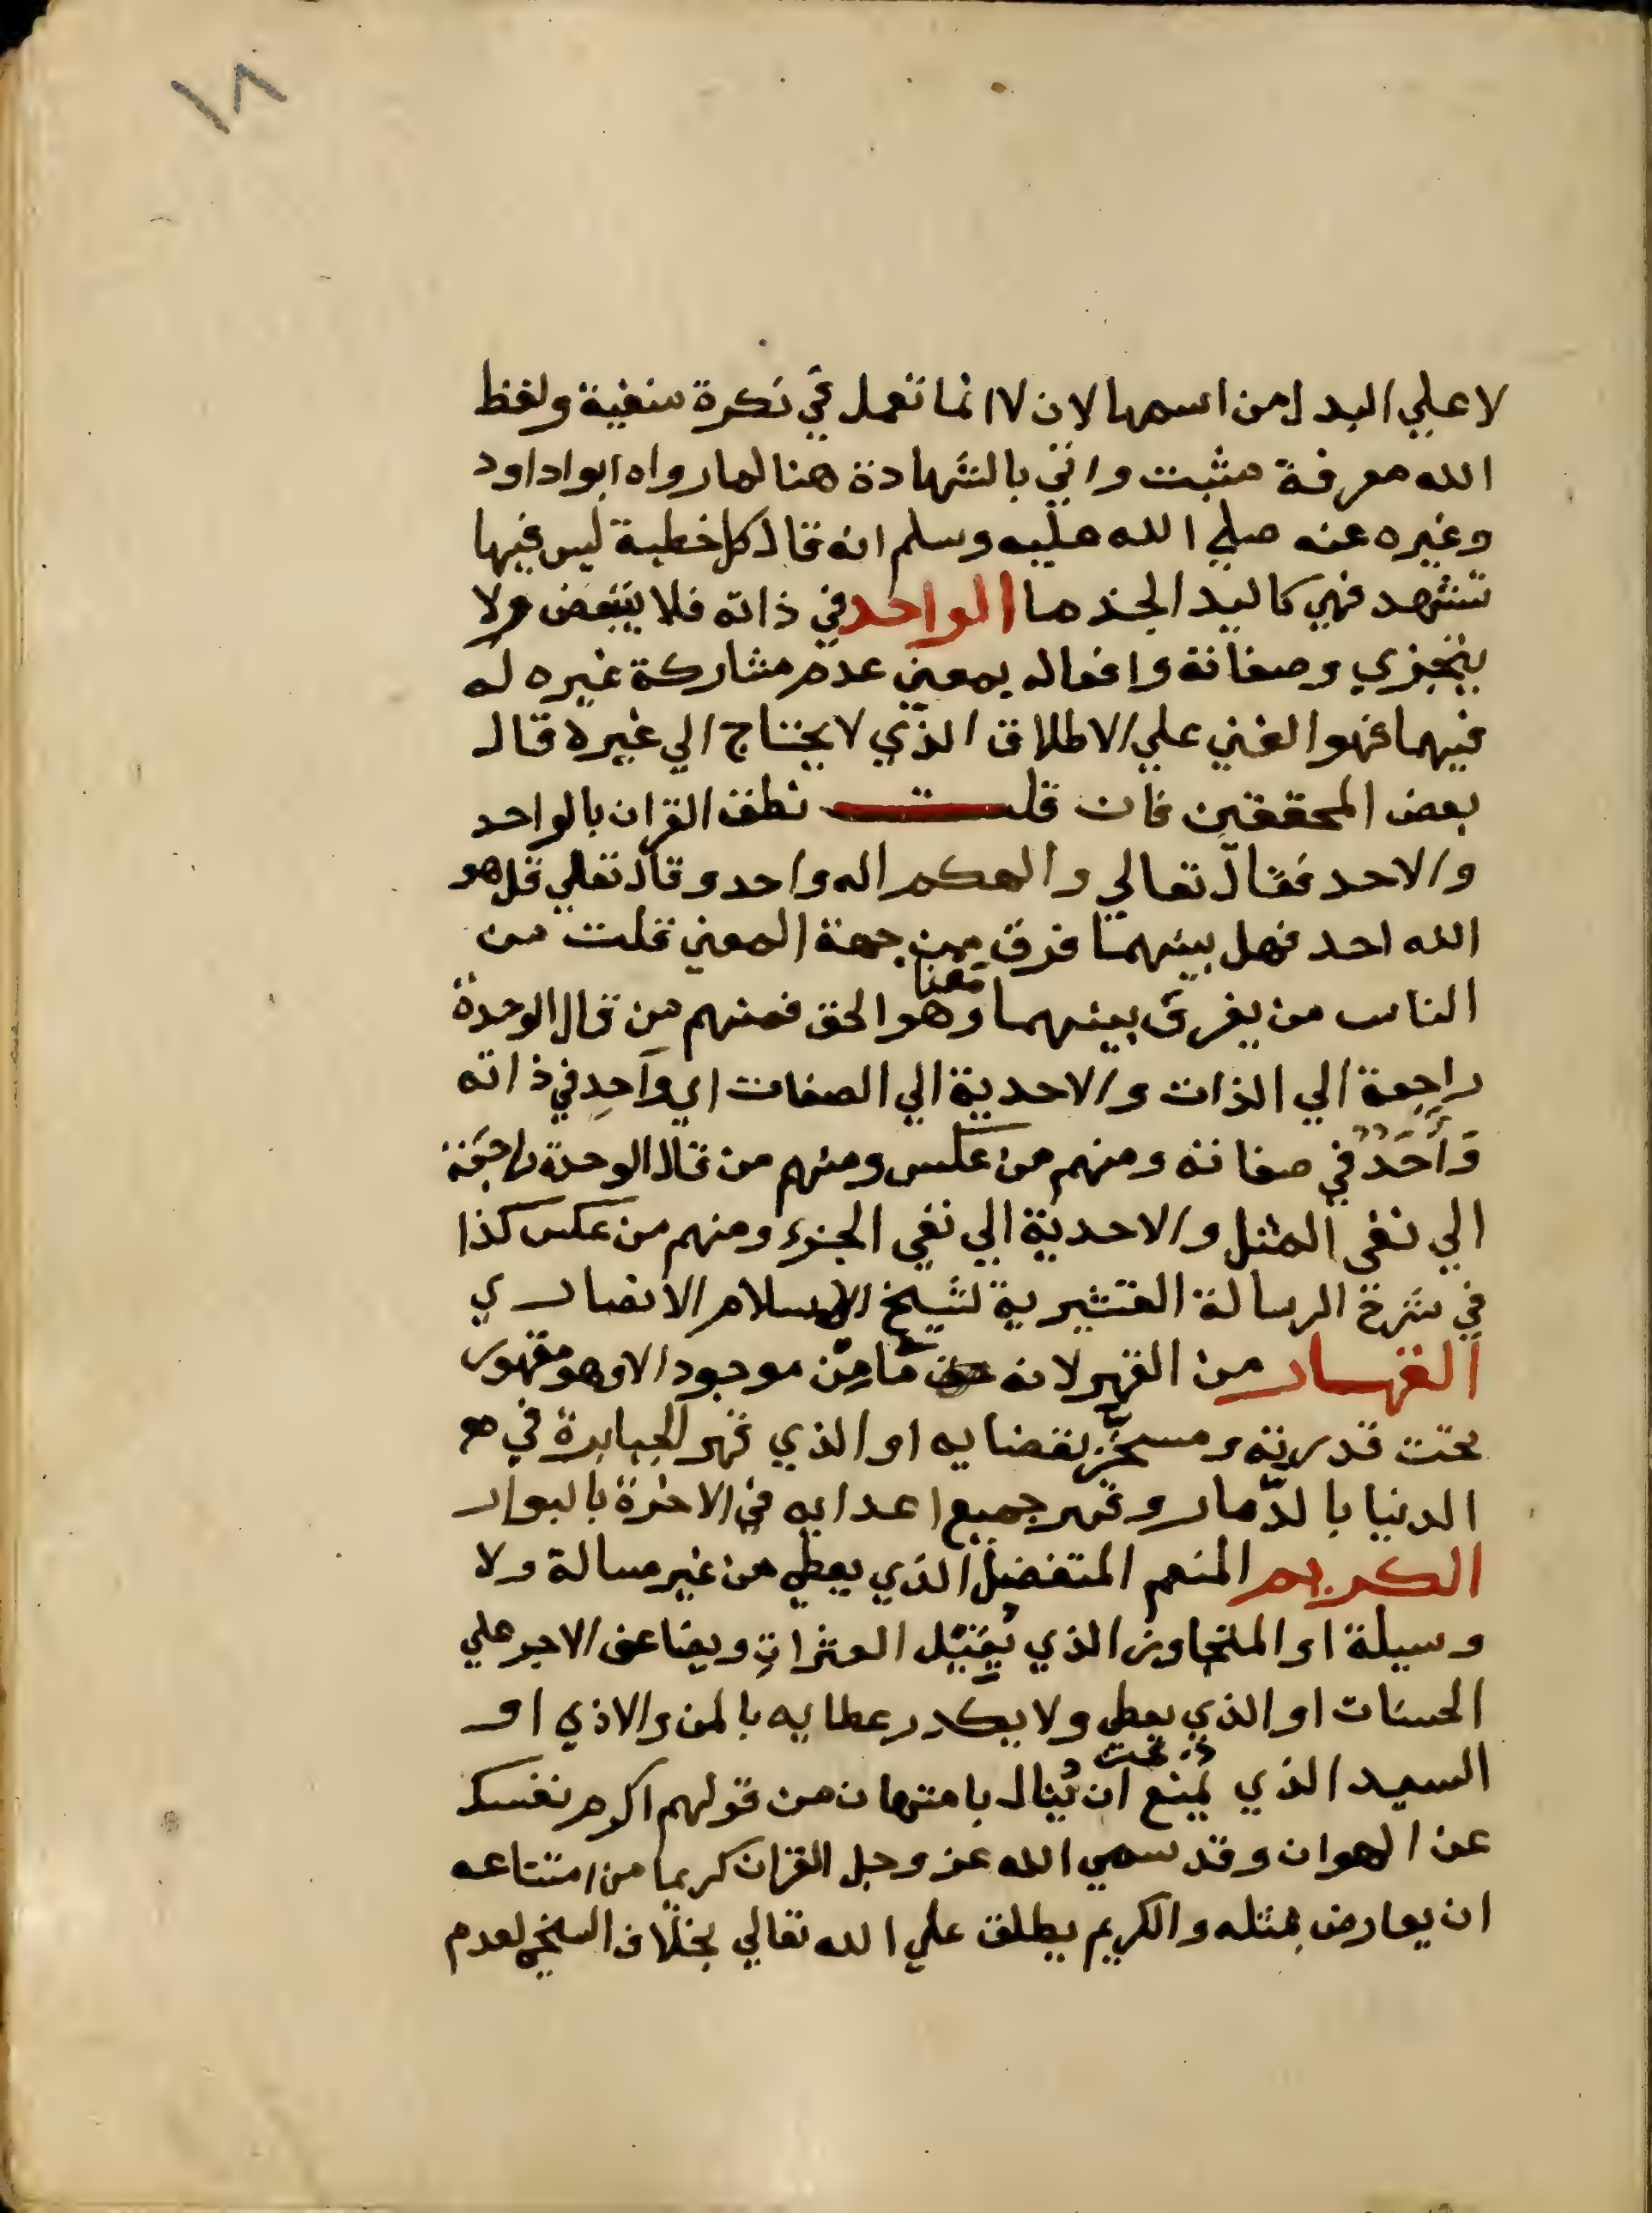 ١٨
لا علي البدل من اسمها لان لا انما تعمل في نكرة منفية ولفظ
الله معرفة مثبت واتي بالشهادة هنا لما رواه ابوا داود
وغيره عنه صلي الله عليه وسلم انه قال كل خطبة ليس فيها
تشهد فهي كاليد الجذما الواحد في ذاته فلا يتبعض ولا
يتجزي وصفاته وافعاله بمعني عدم مشاركة غيره له
فيهما فهو الغني علي الاطلاق الذي لا يحتاج الي غيره قال
بعض المحققين فان قلت نطق القران بالواحد
والاحد فقال تعالي والهكم اله واحد وقال تعالي قل هو
الله احد فهل بينهما فرق من جهة المعني قلت من
الناس من يفرق بينهما معنا وهو الحق فمنهم من قال الوحدة
راجعة الي الذات والاحدية الي الصفات اي واحد في ذاته
وَأَحَدٌ في صفاته ومنهم من عكس ومنهم من قال الوحدة راجعة
الي نفي المثل والاحدية الي نفي الجزء ومنهم من عكس كذا
في شرح الرسالة القشيرية لشيخ الاسلام الانصاري
القهار من القهر لانه ما من موجود الا وهو مقهور
تحت قدرته ومسخر بقضايه او الذي قهر الجبابرة في
الدنيا بالدمار وقهر جميع اعدايه في الاخرة بالبوار
الكريم المنعم المتفضل الذي يعطي من غير مسالة ولا
وسيلة او المتجاوز الذي يُقيل العثرات ويضاعف الاجر علي
الحسنات او الذي يعطي ولا يكدر عطايه بالمن والاذي او
السيد الذي يمنع ان يُنال بامتهان من قولهم اكرم نفسك
عن الهوان وقد سمي الله عز وجل القران كريما من امتناعه
ان يعارض بمثله والكريم يطلق علي الله تعالي بخلاف السخي لعدم